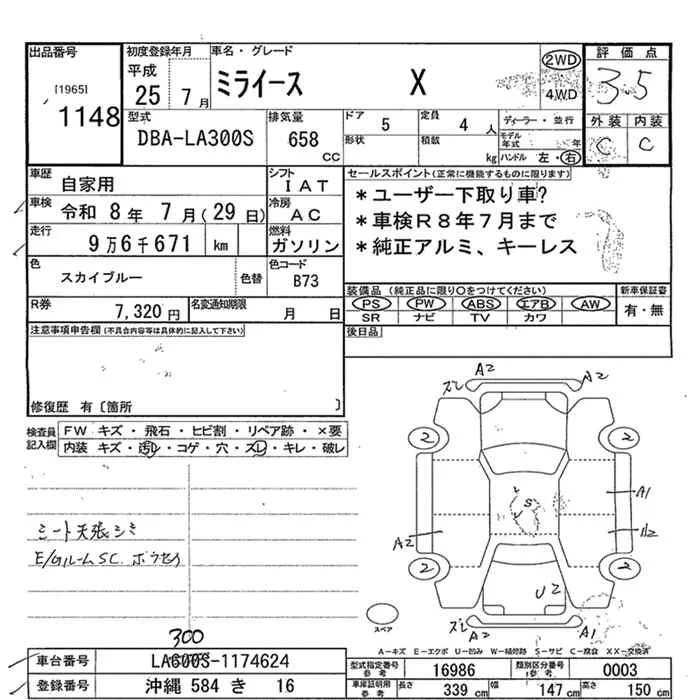 出品番号
[1965]
1148
初度登録年月
平成
25 7月
車名・グレード
ミライース X
2WD
4WD
評価点
3.5
外装 内装
C C
型式
DBA-LA300S
排気量
658
CC
ドア
5
定員
4 人
形状
積載
kg
ディーラー・並行
モデル年式
ハンドル 左・右
車歴
自家用
シフト
IAT
車検
令和 8年 7月(29日)
冷房
AC
走行
9万6千671 km
燃料
ガソリン
色
スカイブルー
色替
色コード
B73
R券
7,320円
名変通知期限
月 日
セールスポイント(正常に機能するものに限ります)
*ユーザー下取り車?
*車検R8年7月まで
*純正アルミ、キーレス
装備品 (純正品に限り○をつけてください)
PS PW ABS エアB AW
SR ナビ TV カワ
新車保証書
有・無
後日品
注意事項申告欄(不具合内容等は具体的に記入して下さい)
修復歴 有〔箇所 〕
検査員
記入欄
FW キズ・飛石・ヒビ割・リペア跡・×要
内装 キズ・汚レ・コゲ・穴・スレ・キレ・破レ
シート天張シミ
E/Gルーム SC.
ズレ A2 A2
2 2
S
A1
A2
2 2
U2
ズレ A2 A1
スペア
A-キズ E-エクボ U-凹み W-補修跡 S-サビ C-腐食 XX-交換済
300
車台番号
LA600S-1174624
登録番号
沖縄 584 き 16
型式指定番号
参考
16986
類別区分番号
参考
0003
車庫証明用
参考
長さ 339 cm 幅 147 cm 高さ 150 cm